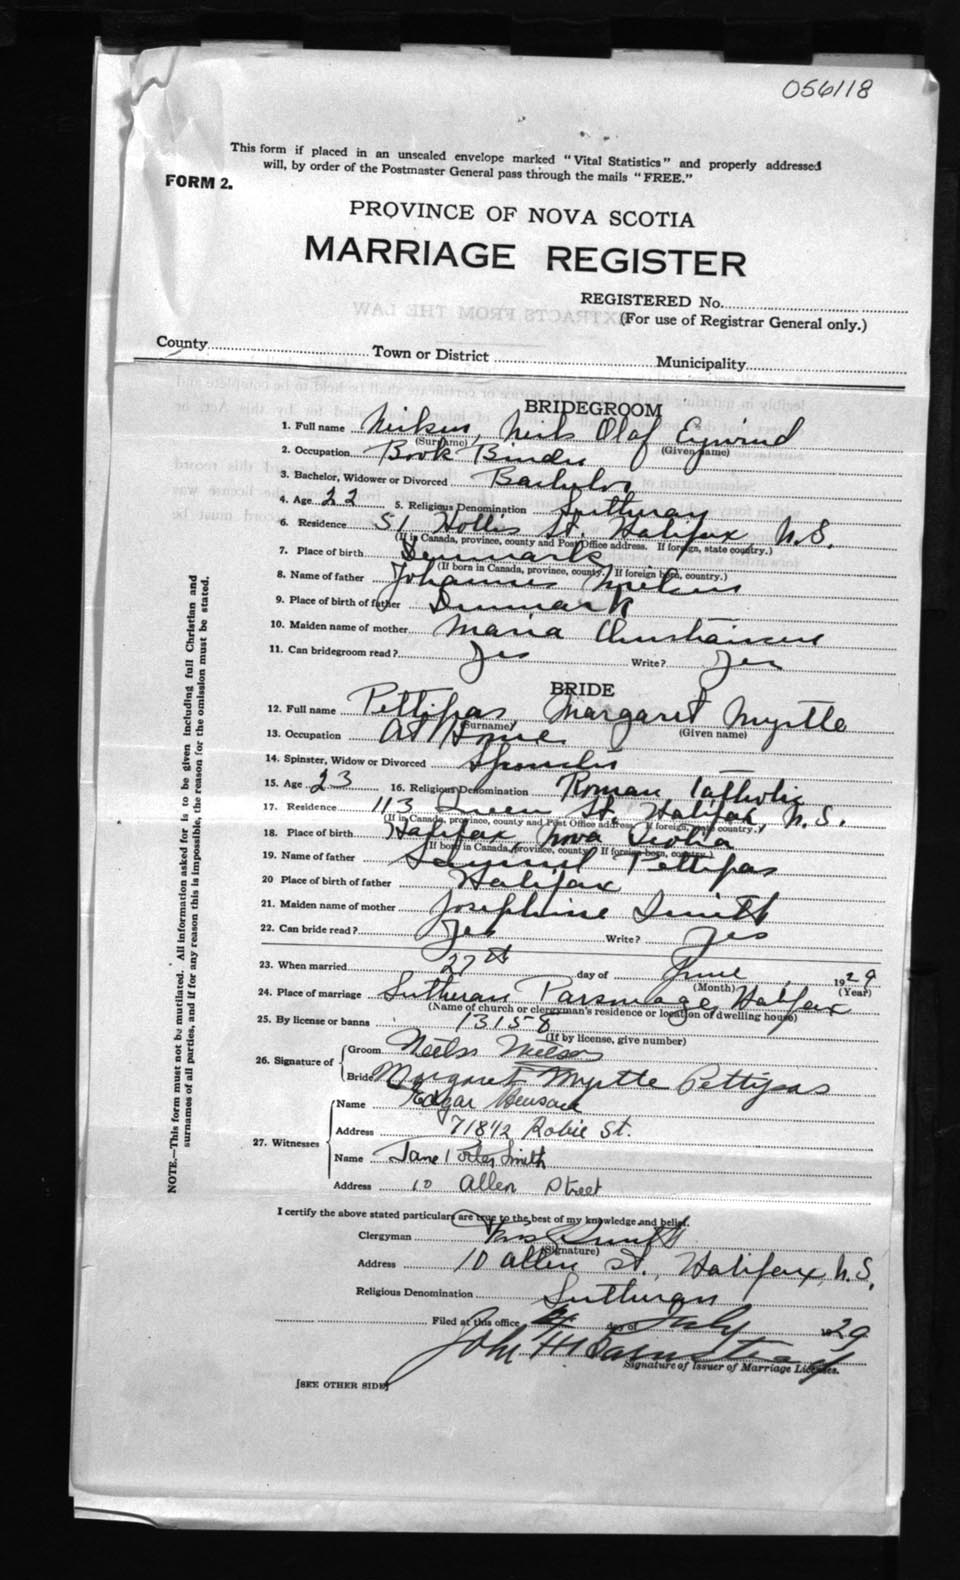 056118
This form if placed in an unsealed envelope marked "Vital Statistics" and properly addressed
will, by order of the Postmaster General pass through the mails "FREE."
FORM 2.
PROVINCE OF NOVA SCOTIA
MARRIAGE REGISTER
REGISTERED No.
(For use of Registrar General only.)
EXTRACTS FROM THE LAW
County Town or District Municipality
BRIDEGROOM
1. Full name Neilsen, Neils Olaf Eywind
(Surname) (Given name)
2. Occupation Book Binder
3. Bachelor, Widower or Divorced Bachelor
4. Age 22 5. Religious Denomination Lutheran
6. Residence 51 Hollis St. Halifax, N.S.
(If in Canada, province, county and Post Office address. If foreign, state country.)
7. Place of birth Denmark
(If born in Canada, province, county. If foreign born, country.)
8. Name of father Johannes Neilsen
9. Place of birth of father Denmark
10. Maiden name of mother Maria Christiansen
11. Can bridegroom read? Yes Write? Yes
BRIDE
12. Full name Pettipas Margaret Myrtle
(Surname) (Given name)
13. Occupation At Home
14. Spinster, Widow or Divorced Spinster
15. Age 23 16. Religious Denomination Roman Catholic
17. Residence 113 Queen St. Halifax, N.S.
(If in Canada, province, county and Post Office address. If foreign, state country.)
18. Place of birth Halifax, Nova Scotia
(If born in Canada, province, county. If foreign born, country.)
19. Name of father Pettipas
20 Place of birth of father Halifax
21. Maiden name of mother Josephine Smith
22. Can bride read? Yes Write? Yes
23. When married 27th day of June 1929
(Month) (Year)
24. Place of marriage Lutheran Parsonage, Halifax
(Name of church or clergyman's residence or location of dwelling house)
25. By license or banns 13158
(If by license, give number)
26. Signature of Groom Neils Neilsen
Bride Margaret Myrtle Pettipas
27. Witnesses Name Edgar
Address 718 1/2 Robie St.
Name Jane Smith
Address 10 Allen Street
I certify the above stated particulars are true to the best of my knowledge and belief.
Clergyman Smith
(Signature)
Address 10 Allen St., Halifax, N.S.
Religious Denomination Lutheran
Filed at this office day of July 1929
John H Barnstead
Signature of Issuer of Marriage Licenses.
[SEE OTHER SIDE]
NOTE.—This form must not be mutilated. All information asked for is to be given including full Christian and
surnames of all parties, and if for any reason this is impossible, the reason for the omission must be stated.